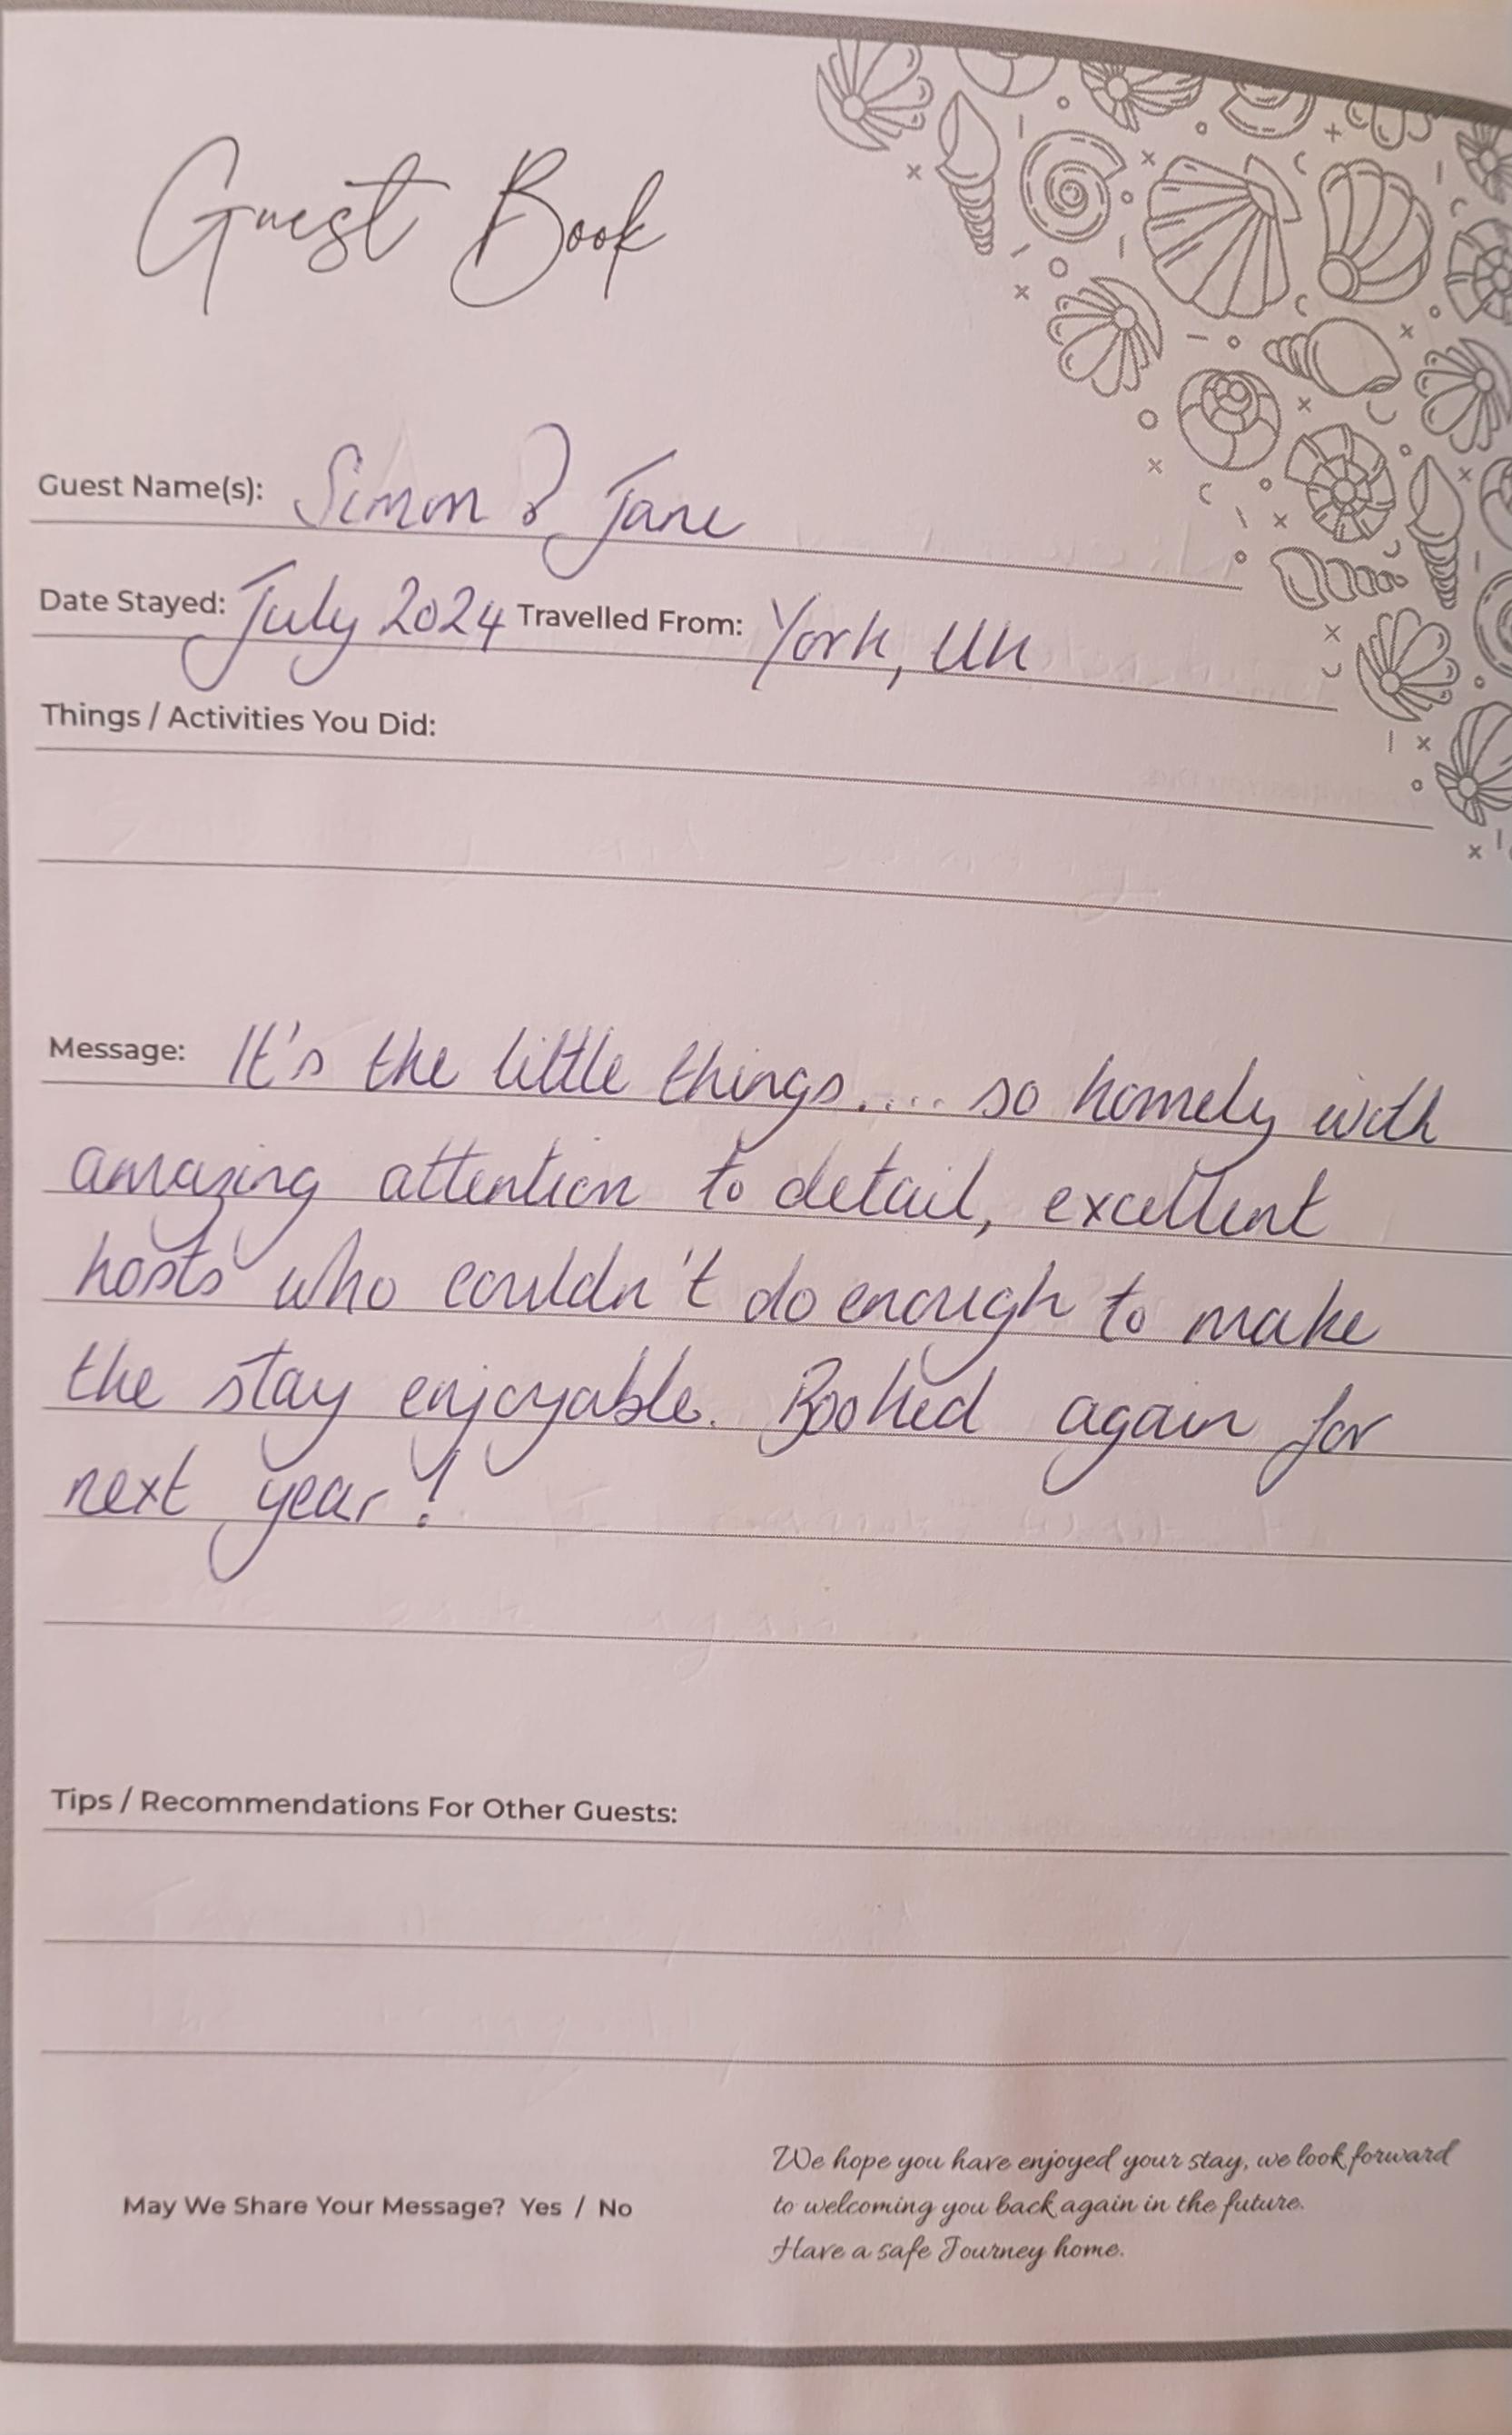 Guest Book
Guest Name(s): Simon & Jane
Date Stayed: July 2024 Travelled From: York, UK
Things / Activities You Did:
Message: It's the little things.... so homely with
amazing attention to detail, excellent
hosts who couldn't do enough to make
the stay enjoyable. Booked again for
next year!
Tips / Recommendations For Other Guests:
May We Share Your Message? Yes / No
We hope you have enjoyed your stay, we look forward
to welcoming you back again in the future.
Have a safe Journey home.